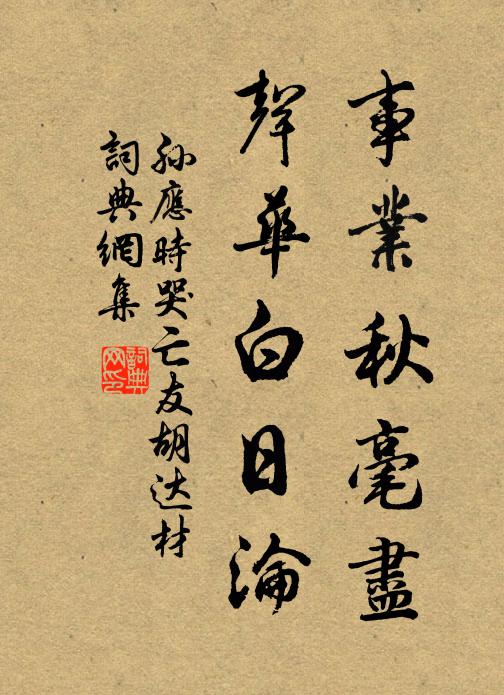 事業秋毫盡
聲華白日淪
孫應時哭亡友胡达材
詞典網集
詞典网印